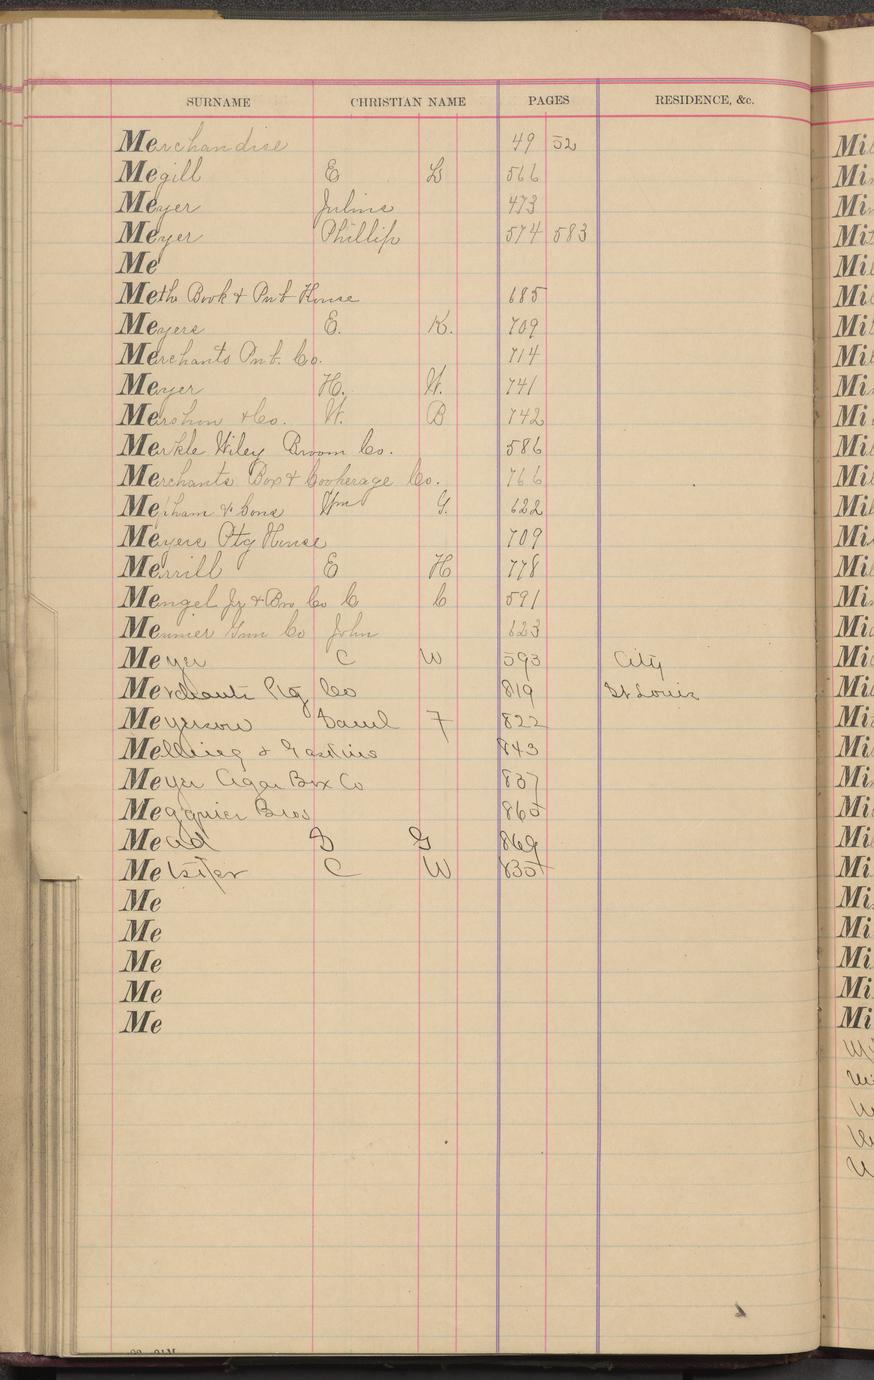 SURNAME CHRISTIAN NAME PAGES RESIDENCE, &c.
Merchandise 49 52
Megill E L 566
Meyer Julius 473
Meyer Phillip 574 583
Me
Meth Book & Pub House 685
Meyers E. K. 709
Merchants Pub. Co. 714
Meyer H. W. 741
Mershon & Co. W. B 742
Merkle Wiley Broom Co. 586
Merchants Box & Cooperage Co. 766
& Sons Wm G. 622
Meyers Ptg House 709
Merrill E H 778
Mengel Jr & Bro Co C C 591
Meunier Gun Co John 623
Meyer C W 593 City
Merchants Ptg Co 819 St Louis
Meyerson Saml F 822
& Gaskins 843
Meyer Cigar Box Co 837
Megquier Bros 865
Mead S G 869
C W 835
Me
Me
Me
Me
Me